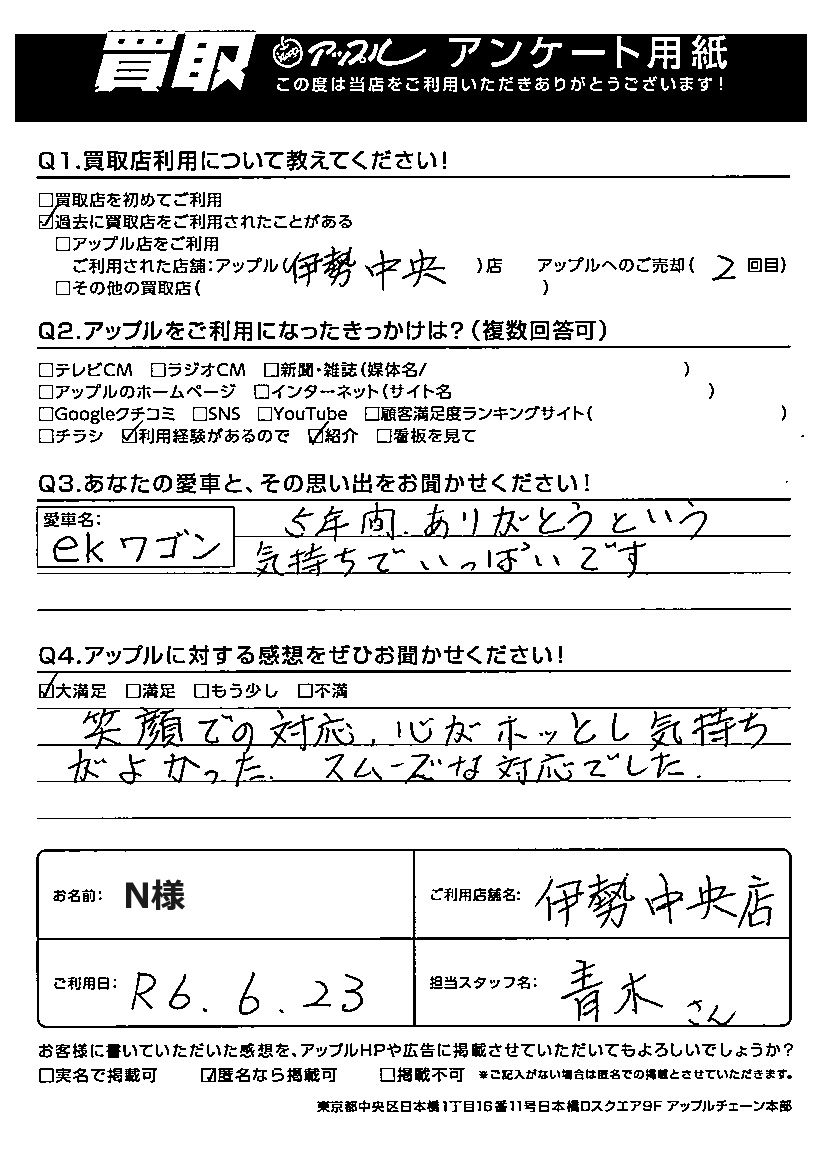 買取 アップル アンケート用紙
この度は当店をご利用いただきありがとうございます!
Q1.買取店利用について教えてください!
□買取店を初めてご利用
☑過去に買取店をご利用されたことがある
□アップル店をご利用
ご利用された店舗:アップル(伊勢中央 )店 アップルへのご売却( 2 回目)
□その他の買取店( )
Q2.アップルをご利用になったきっかけは?(複数回答可)
□テレビCM □ラジオCM □新聞・雑誌(媒体名/ )
□アップルのホームページ □インターネット(サイト名 )
□Googleクチコミ □SNS □YouTube □顧客満足度ランキングサイト( )
□チラシ ☑利用経験があるので ☑紹介 □看板を見て
Q3.あなたの愛車と、その思い出をお聞かせください!
愛車名:
ekワゴン
5年間.ありがとうという
気持ちでいっぱいです
Q4.アップルに対する感想をぜひお聞かせください!
☑大満足 □満足 □もう少し □不満
笑顔での対応,心がホッとし気持ち
がよかった. スムーズな対応でした.
お名前: N様
ご利用店舗名: 伊勢中央店
ご利用日: R6.6.23
担当スタッフ名: 青木さん
お客様に書いていただいた感想を、アップルHPや広告に掲載させていただいてもよろしいでしょうか?
□実名で掲載可 ☑匿名なら掲載可 □掲載不可 ※ご記入がない場合は匿名での掲載とさせていただきます。
東京都中央区日本橋1丁目16番11号日本橋Dスクエア9F アップルチェーン本部